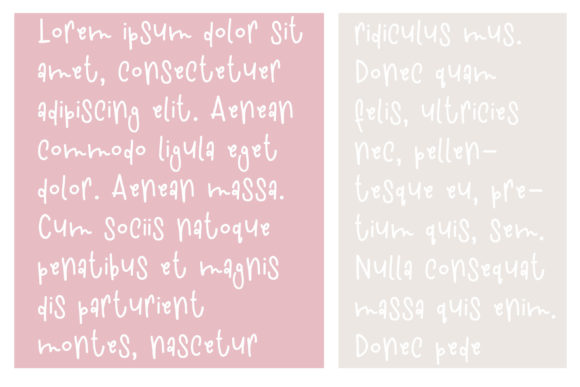 Lorem ipsum dolor sit
amet, consectetuer
adipiscing elit. Aenean
commodo ligula eget
dolor. Aenean massa.
Cum sociis natoque
penatibus et magnis
dis parturient
montes, nascetur
ridiculus mus.
Donec quam
felis, ultricies
nec, pellen-
tesque eu, pre-
tium quis, sem.
Nulla consequat
massa quis enim.
Donec pede